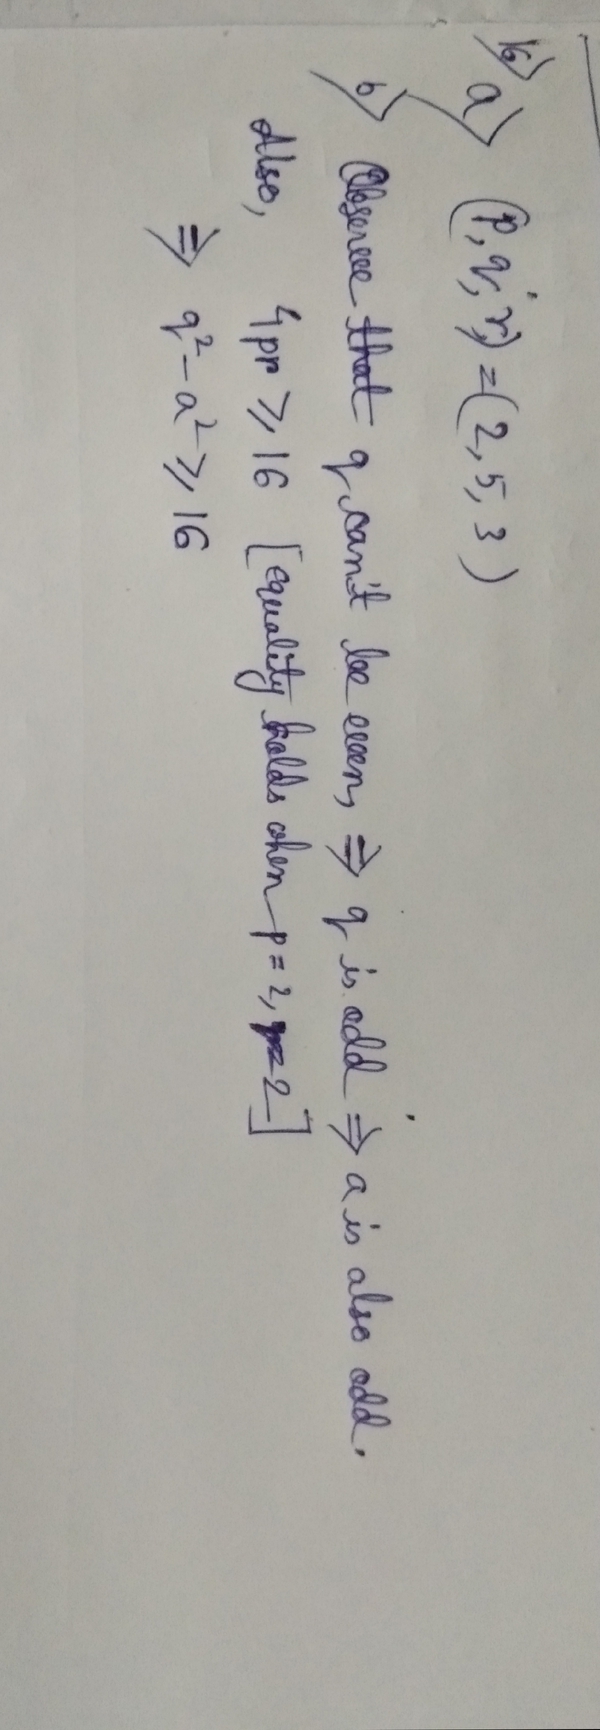 16) a) (p, q, r) = (2, 5, 3)
b) Observe that q can't be even, ⇒ q is odd ⇒ a is also odd.
Also, 4pr ⩾ 16 [equality holds when p = 2, r = 2]
⇒ q² - a² ⩾ 16